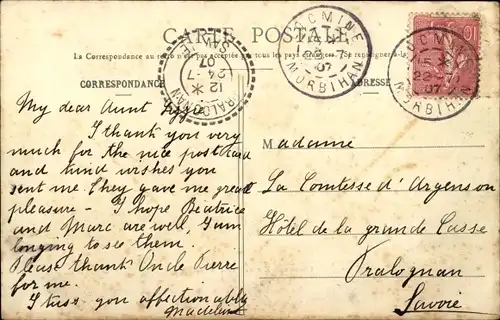 CARTE POSTALE
La Correspondance au recto n'est pas acceptée
CORRESPONDANCE
ADRESSE
LOCMINÉ
15 *
22-7
07
MORBIHAN
LOCMINÉ
15 *
22-7
07
MORBIHAN
10
PRALOGNAN
12 *
24-7
07
SAVOIE
My dear Aunt
I thank you very
much for the nice postcard
and kind wishes you
sent me. They gave me great
pleasure - I hope Beatrice
and Marc are well, I am
longing to see them.
Please thank Oncle Pierre
for me.
I kiss you affectionately
Madeleine
Madame
La Comtesse d'Argenson
Hôtel de la grande Casse
Pralognan
Savoie